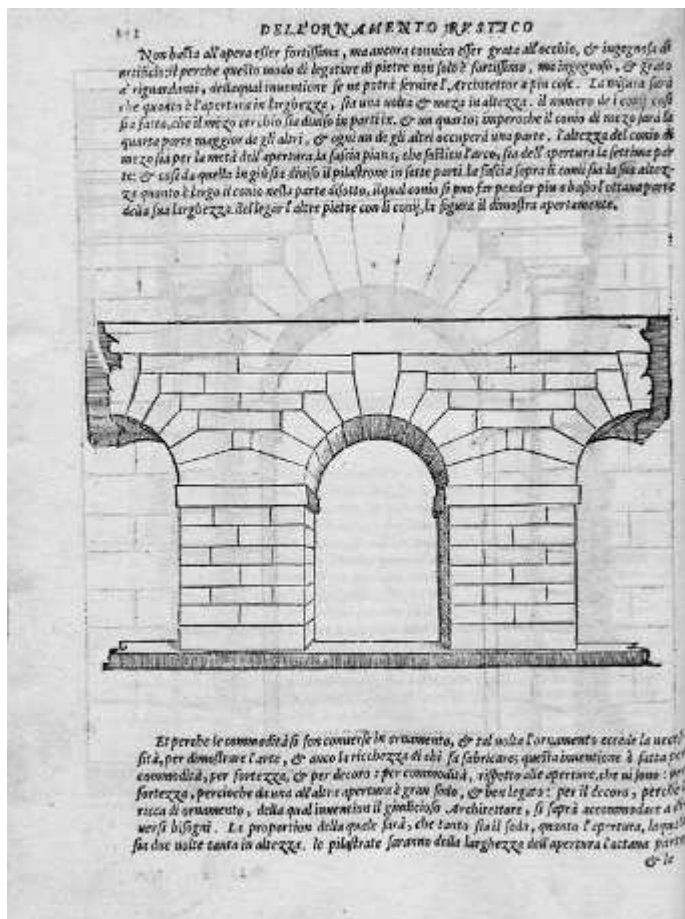 DELL'ORNAMENTO RVSTICO
Non basta all'opera esser fortissima, ma ancora conuien esser grata all'occhio, & ingegnosa di
artificio: il perche questo modo di legature di pietre non solo è fortissimo, ma ingegnoso, & grato
a' riguardanti, della qual inuentione se ne potrà seruire l'Architettor a piu cose. La misura sarà
che quanto è l'apertura in larghezza, sia una uolta & meza in altezza. il numero de i conij cosi
sia fatto, che il mezo cerchio sia diuiso in parti ix. & un quarto; imperoche il conio di mezo sarà la
quarta parte maggior de gli altri, & ogni un de gli altri occuperà una parte. l'altezza del conio di
mezo sia per la metà dell'apertura. la fascia piana, che sostien l'arco, sia dell'apertura la settima par
te: & cosi da quella in giù sia diuiso il pilastrone in sette parti. la fascia sopra li conij sia la sua altez-
za quanto è largo il conio nella parte disotto, il qual conio si puo far pender piu a basso l'ottaua parte
della sua larghezza. del legar l'altre pietre con li conij, la figura il dimostra apertamente.
Et perche le commodità si son conuerse in ornamento, & tal uolta l'ornamento eccede la neces
sità, per dimostrare l'arte, & anco la ricchezza di chi fa fabricare; questa inuentione è fatta per
commodità, per fortezza, & per decoro: per commodità, rispetto alle aperture, che ui sono: per
fortezza, percioche da una all'altre apertura è gran sodo, & ben legato: per il decoro, perche è
ricca di ornamento, della qual inuention il giudicioso Architettore, si saprà accommodare a di
uersi bisogni. La proportion della quale sarà, che tanto sia il sodo, quanto l'apertura, la qual
sia due uolte tanta in altezza. le pilastrate saranno della larghezza dell'apertura l'ottaua parte
& le